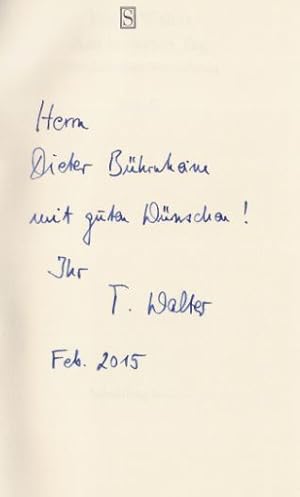 S
Herrn
Dieter Bührnheim
mit guten Wünschen!
Ihr
T. Walter
Feb. 2015